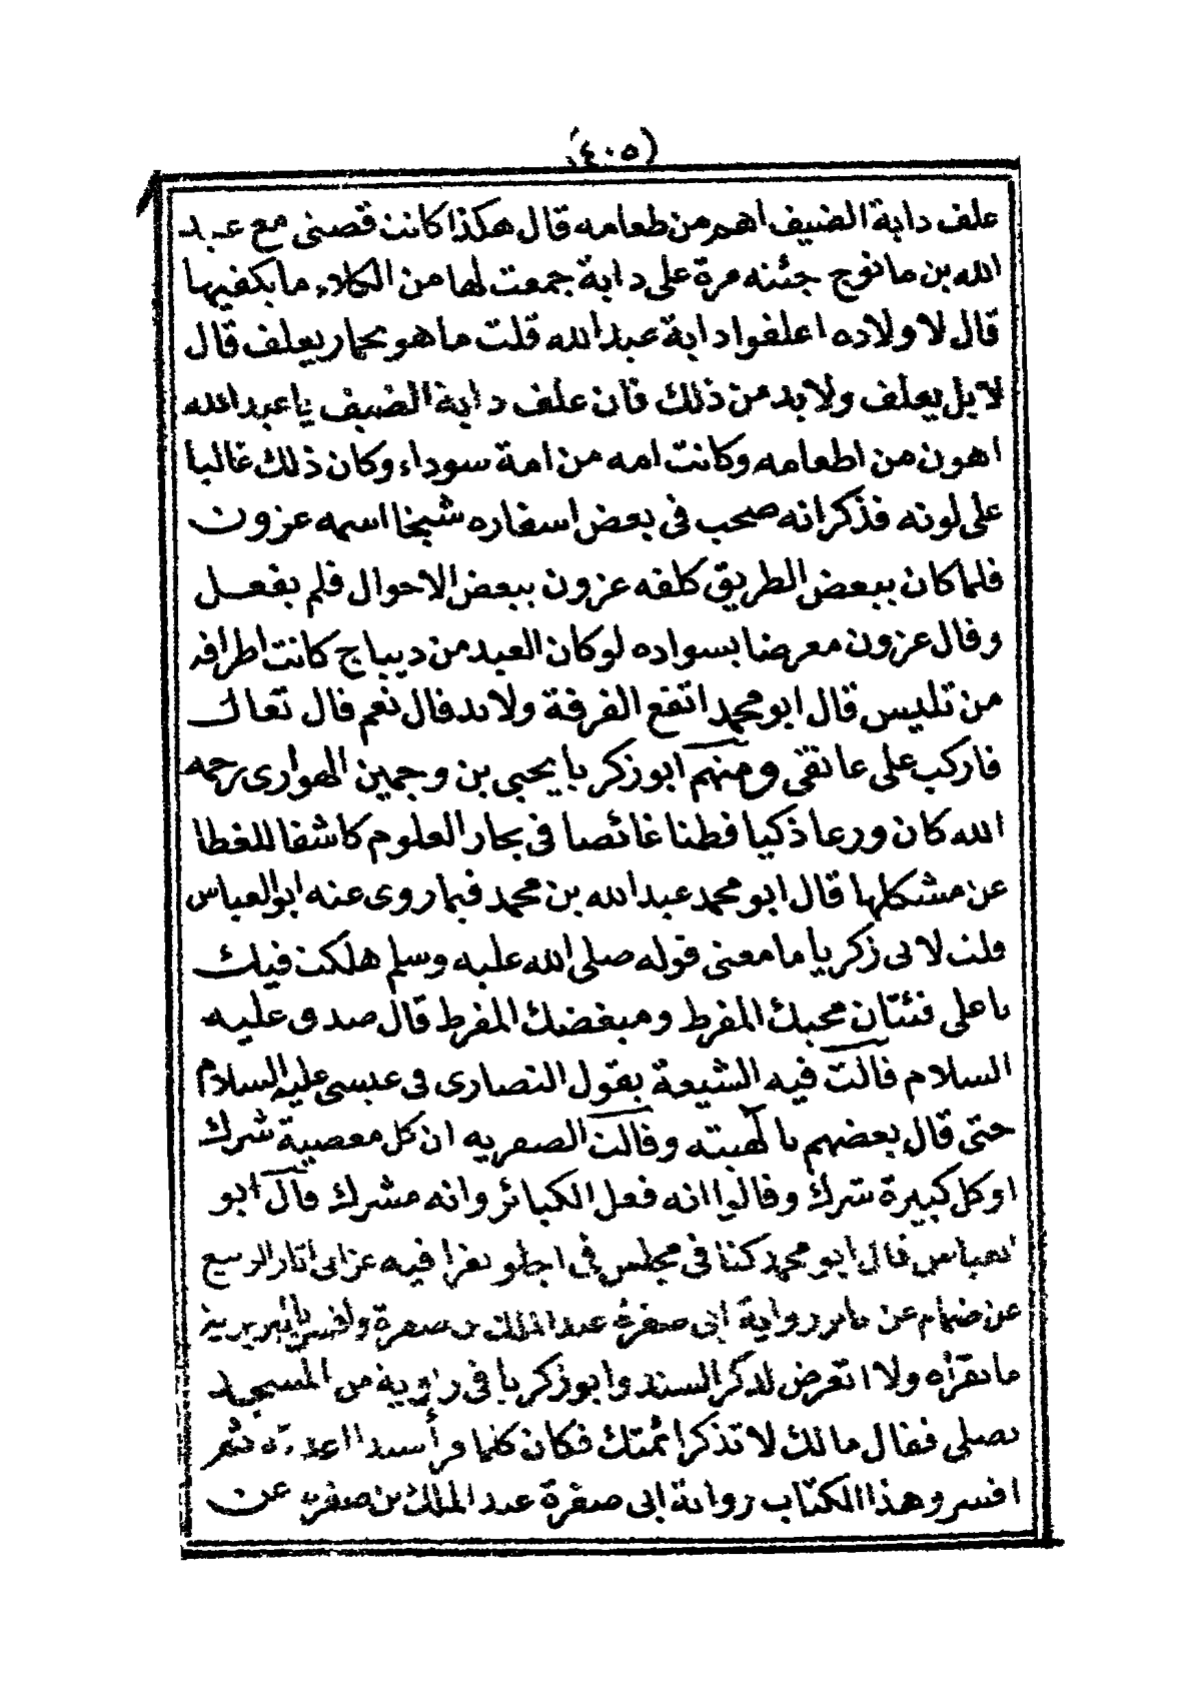 (٤٠٥)
علف دابة الضيف اهم من طعامه قال هكذا كانت قصتى مع عبد
الله بن مانوج جئته مرة على دابة جمعت لها من الكلاء ما يكفيها
قال لاولاده اعلفوا دابة عبد الله قلت ما هو بحمار يعلف قال
لا بل يعلف ولا بد من ذلك فان علف دابة الضيف يا عبد الله
اهون من اطعامه وكانت امه من امة سوداء وكان ذلك غالبا
على لونه فذكر انه صحب فى بعض اسفاره شيخا اسمه عزون
فلما كان ببعض الطريق كلفه عزون ببعض الاحوال فلم يفعل
وقال عزون معرضا بسواده لو كان العبد من ديباج كانت اطرافه
من تليس قال ابو محمد اتقع الفرقة ولا بد قال نعم قال تعال
فاركب على عانقى ومنهم ابو زكريا يحيى بن وجمين الهوارى رحمه
الله كان ورعا ذكيا فطنا غائصا فى بحار العلوم كاشفا للغطا
عن مشكلها قال ابو محمد عبد الله بن محمد فيما روى عنه ابو العباس
قلت لابى زكريا ما معنى قوله صلى الله عليه وسلم هلكت فيك
يا على فئتان محبك المفرط ومبغضك المفرط قال صدق عليه
السلام قالت فيه الشيعة بقول النصارى فى عيسى عليه السلام
حتى قال بعضهم بالهيته وقالت الصفريه ان كل معصية شرك
او كل كبيرة شرك وقالوا انه فعل الكبائر وانه مشرك قال ابو
العباس قال ابو محمد كنا فى مجلس فى اجلو نقرا فيه عزابى اتار الربيع
عن ضمام عن جابر رواية ابى صفرة عبد الملك بن صفرة وافسر بالبربرية
ما نقراه ولا اتعرض لذكر السند وابو زكريا فى زاوية من المسجد
يصلى فقال مالك لا تذكر ائمتك فكان كلما قرأ سندا اعدته ثم
افسر وهذا الكتاب رواية ابى صفرة عبد الملك بن صفره عن